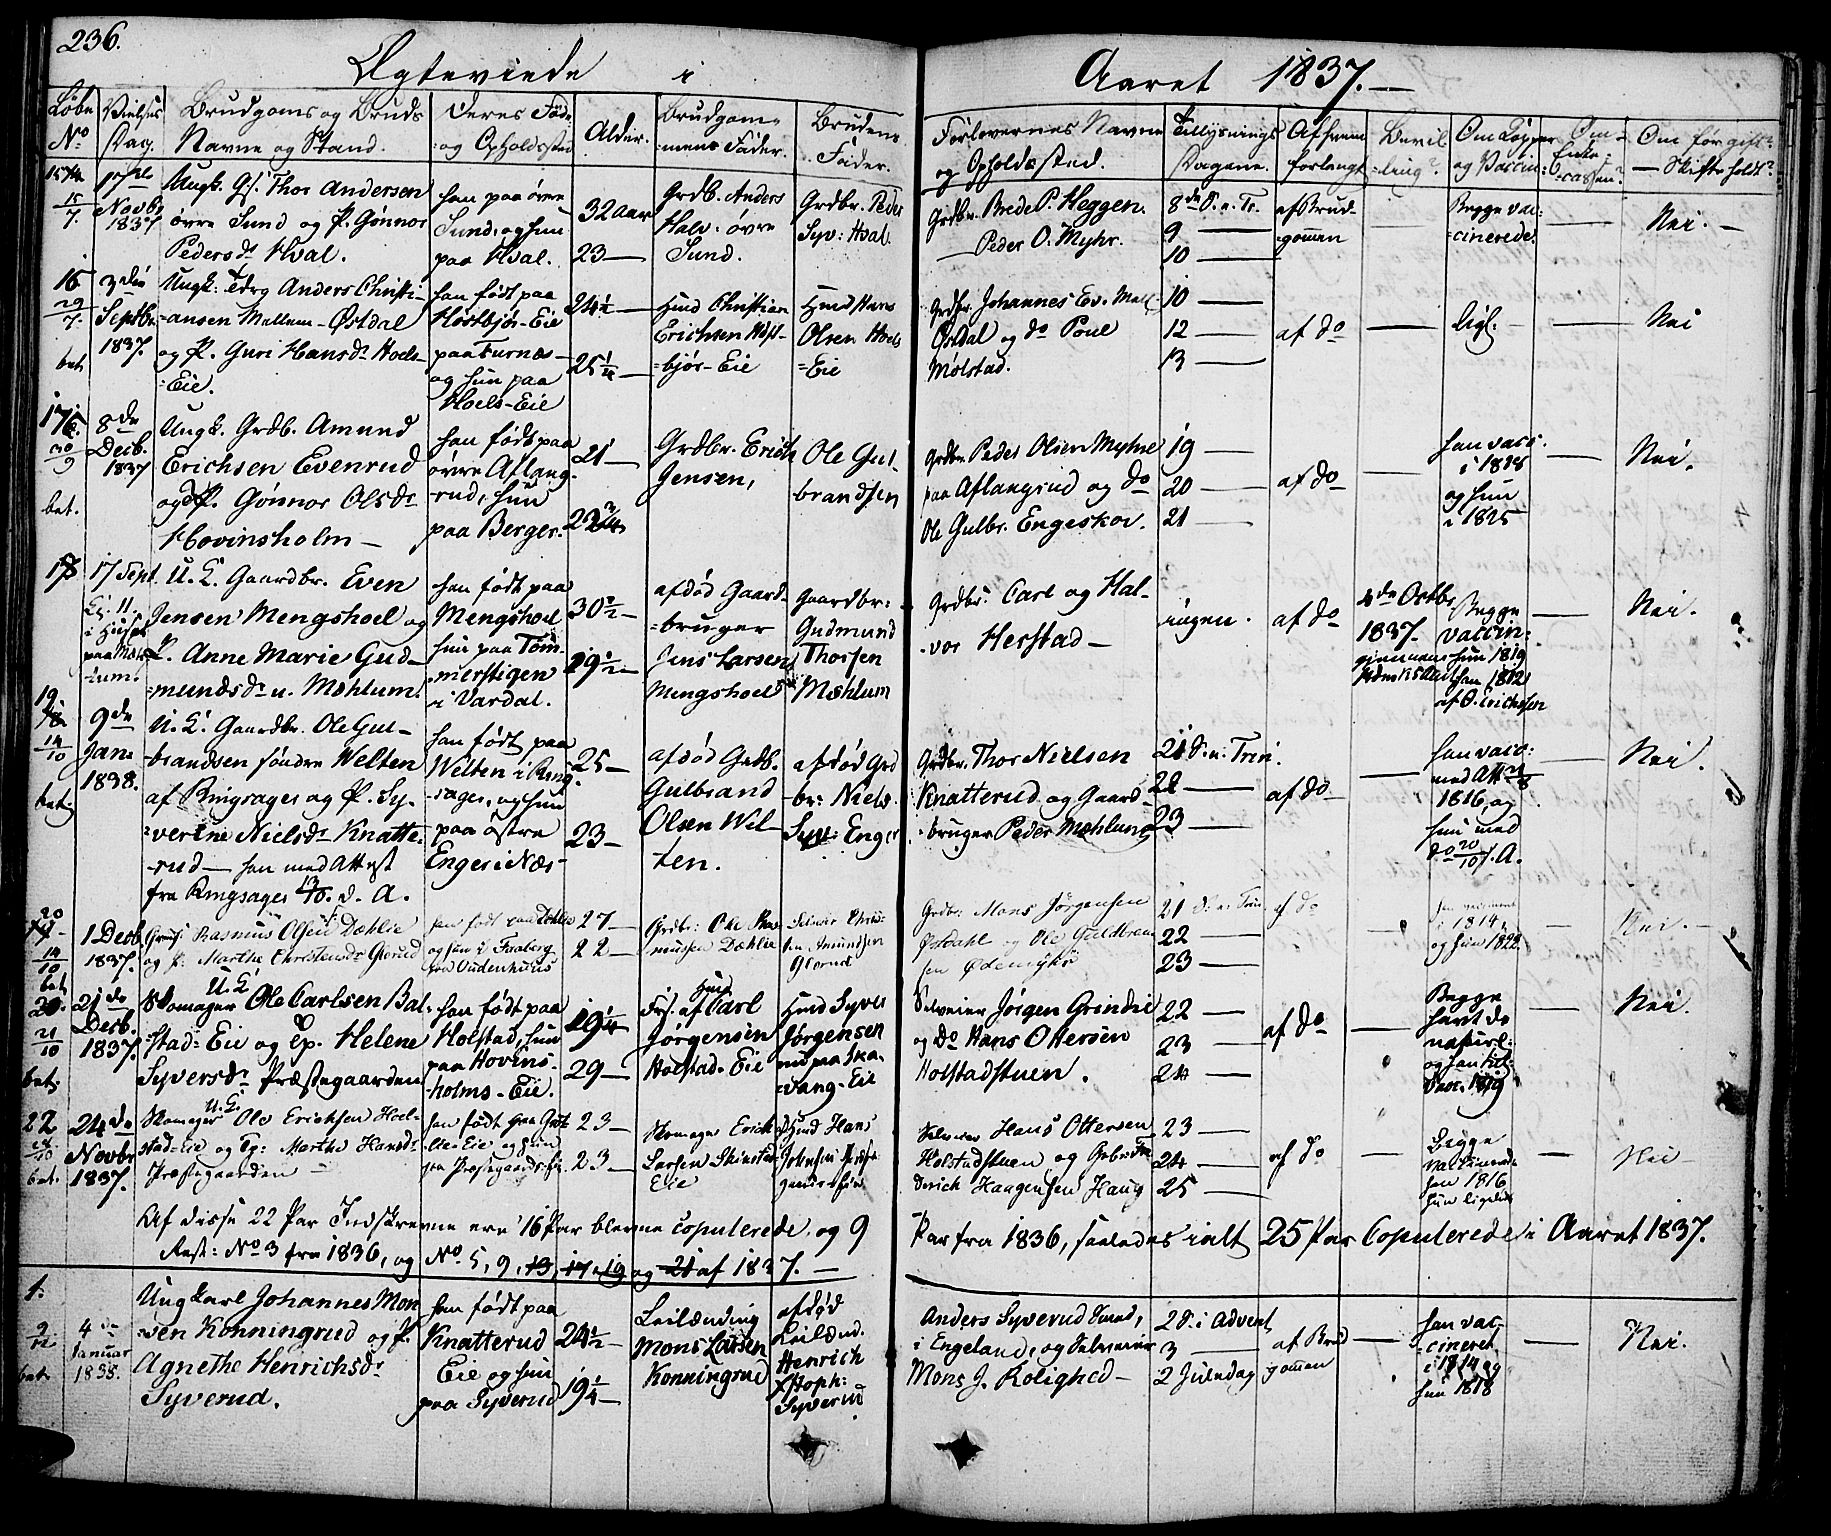 236.
Ægteviede i
Aaret 1837.—
Løbe No
Vielses Dag.
Brudgoms og Bruds Navne og Stand.
Deres Føde og Opholdssted
Alder.
Brudgommens Fader.
Brudens Fader.
Forlovernes Navne og Opholdssted.
Tillysnings Dagene.
Af hvem forlangt
Bevilling?
Om Kopper og Vaccin:
Om Enkecassen?
Om før gift? — Skifte holdt?
15/7.
17de Novbr 1837
Ungk. Gf. Thor Andersen
øvre Sund og P. Gønnor
Pedersdr Hval.
han paa øvre
Sund, og hun
paa Hval.
32 Aar
23 —
Grdb. Anders
Halv. øvre
Sund.
Grdbr. Peder
Syv: Hval.
Grdbr. Brede P. Heggen.
Peder O. Myhr.
8de S. e. Tr.
9 —
10 —
af Brud-
gommen
Begge vac:
cinerede.
Nei. —
16
29/7.
bet
3die
Septbr
1837.
Ungk: Anders Christi-
ansen Mellem-Østdal
og P. Guri Hansdr Hoels-
Eie.
han født paa
Høstbjør-Eie
paa Furnæs-
og hun paa
Hoels-Eie
24 1/2 —
25 1/4 —
Husmd Christian
Erichsen Høst-
bjør-Eie
Husmd Hans
Olsen Hoels
-Eie
Grdbr Johannes Ev. Mell-
Østdal og do Poul
Mølstad.
10 —
12 —
13 —
af do
ligl: —
Nei
17
30/9
bet.
8de
Decb.
1837
Ungk. Grdb. Amund
Erichsen Evenrud
og P. Gønnor Olsdr
Hovinsholm —
han født paa
øvre Aflang-
rud, hun
paa Berger.
21 —
22 3/4
Grdbr. Erich
Jensen,
Ole Gul-
brandsen
Grdbr Peder Olsen Myhre
paa Aflangrud og do
Ole Gulbr. Engeskov.
19 —
20 —
21 —
af do
han vacc.
i 1818
og hun
i 1825
Nei.
18
17 Sept
Kl. 11.
i Huset
paa Mæh-
lum.
U. K. Gaardbr. Even
Jensen Mengshoel og
P. Anne Marie Gud-
mundsdr n. Mæhlum.
han født paa
Mengshoel
hun paa Tøm-
merstigen
i Vardal.
30 1/2 —
29 1/2 —
afdød Gaard-
bruger
Jens Larsen
Mengshoel
Gaardbr:
Gudmund
Thorsen
Mæhlum
Grdbr: Carl og Hal-
vor Herstad —
ingen.
af do
1837.
Begge
vaccin:
hun 1819
han 1812
af O. Erichsen
Nei.
19
14/10
bet.
9de
Jan.
1838.
U. K. Gaardbr. Ole Gul-
brandsen søndre Welten
af Ringsager og P. Sy-
verine Nielsdr Knatte-
rud — han med Attest
fra Ringsager 13/10. d. A.
han født paa
Welten i Ring-
sager, og hun
paa østre
Enger i Næs-
25 —
23 —
afdød Grdb.
Gulbrand
Olsen Wel-
ten.
afdød Grd
br: Niels
Syv: Enger
Grdbr. Thor Nielsen
Knatterud og Gaard-
bruger Peder Mæhlum
21 S. e. Trin.
22 —
23 —
af do
han vacc:
med Att
1816, og
hun med
do 20/10. A.
Nei.
20
14/10
bet
1 Decb
1837.
Rasmus Olsen Dæhlie
og P. Marthe Christensdr Glørud
han født paa Dæhlie
og hun i Faaberg
27 —
22 —
Grdbr: Ole Ras-
mussen Dæhlie
Selveier Christen
Amundsen
Glørud
Grdbr: Mons Jørgensen
Østdahl og Ole Guldbrand-
sen Ødemyhr
21 S. e. Trin
22 —
23 —
af do
i 1814
og hun 1822
Nei. —
21/10
bet.
21de
Decb.
1837.
U. K.
Skomager Ole Carlsen Bal-
stad-Eie og Ep. Helene
Syversdr Præstegaarden
han født paa
Holstad, hun
paa Hovins-
holms-Eie.
29 1/4
29 —
Carl
Jørgensen
Holstad-Eie
Husmd Syver
Jørgensen
nu paa Ska-
vang-Eie
Selveier Jørgen Grindie
og Do Hans Ottersen
Holstadstuen.
22 —
23 —
24
af do
Begge
havt de
naturl:
Nei.
22
28/10
bet.
24de
Novbr
1837.
U. K.
Skomager Ole Erichsen Hoel-
stad-Eie og Pg: Marthe Hansdr
Præstegaarden —
23 —
23 —
Skomager Erich
Larsen Skinstad
Eie
Husmd Hans
Selveier Hans Ottersen
Holstadstuen og
Haagensen Haug
23 —
24 —
25 —
af do
Begge
vaccinerede
han 1816
hun ligeledes
Nei —
Af disse 22 Par Indskrevne ere 16 Par blevne copulerede, og 9
Par fra 1836, saaledes ialt 25 Par Copulerede i Aaret 1837.
Rest: No 3 fra 1836, og No 5, 9, 13, 17, 19 og 21 af 1837. —
1.
9/12.
bet.
4de
Januar
1838.
Ungkarl Johannes Mon-
sen Konningrud og P.
Agnethe Henrichsdr
Syverud.
han født paa
Knatterud
Eie og hun
paa Syverud
24 1/2 —
19 1/4 —
Leilænding
Mons Larsen
Konningrud
afdød
Leilænd.
Henrich
Xstoph:
Syverud
Anders Syverud Sund,
i Engeland, og Selveier
Mons J. Rolighed —
2 S. i Advent
3 —
2 Juledag
af Brud
gommen
han vac-
cineret
i 1814 og
hun 1818
Nei.